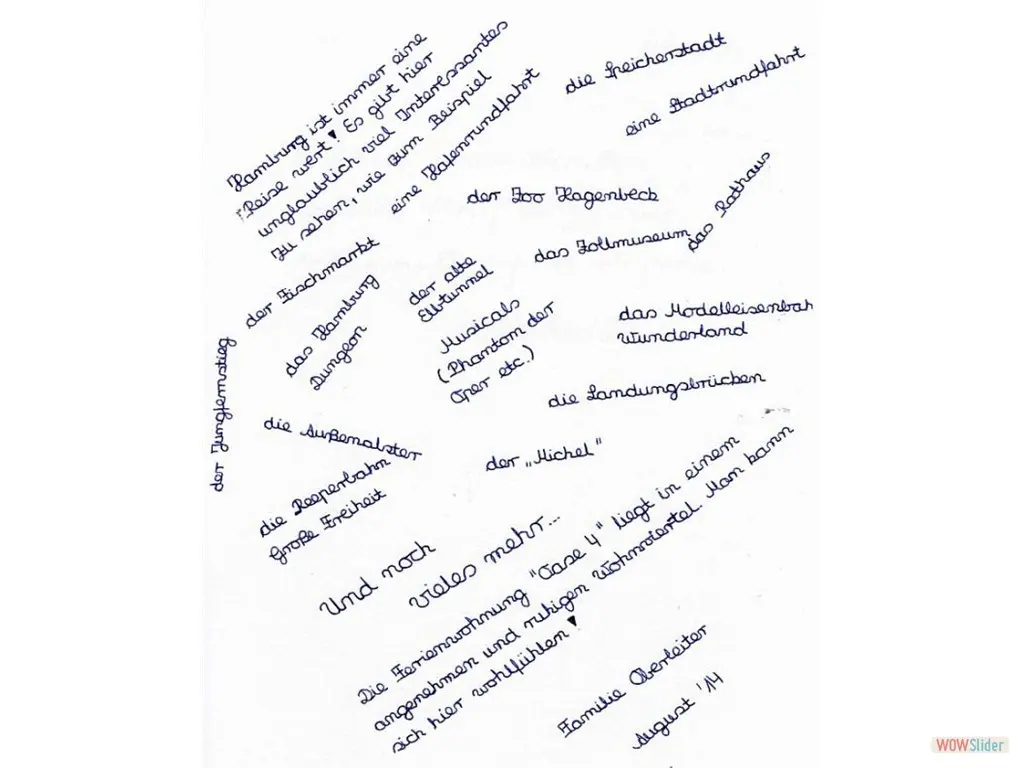 Hamburg ist immer eine
Reise wert! Es gibt hier
unglaublich viel Interessantes
zu sehen, wie zum Beispiel
eine Hafenrundfahrt
die Speicherstadt
eine Stadtrundfahrt
der Zoo Hagenbeck
das Rathaus
das Zollmuseum
der Fischmarkt
der alte
Elbtunnel
das Hamburg
Dungeon
Musicals
(Phantom der
Oper etc.)
das Modelleisenbah
Wunderland
der Jungfernstieg
die Landungsbrücken
die Außenalster
der „Michel"
die Reeperbahn
Große Freiheit
Und noch
vieles mehr...
Die Ferienwohnung "Oase 4" liegt in einem
angenehmen und ruhigen Wohnviertel. Man kann
sich hier wohlfühlen!
Familie Oberleiter
August '14
WOWSlider